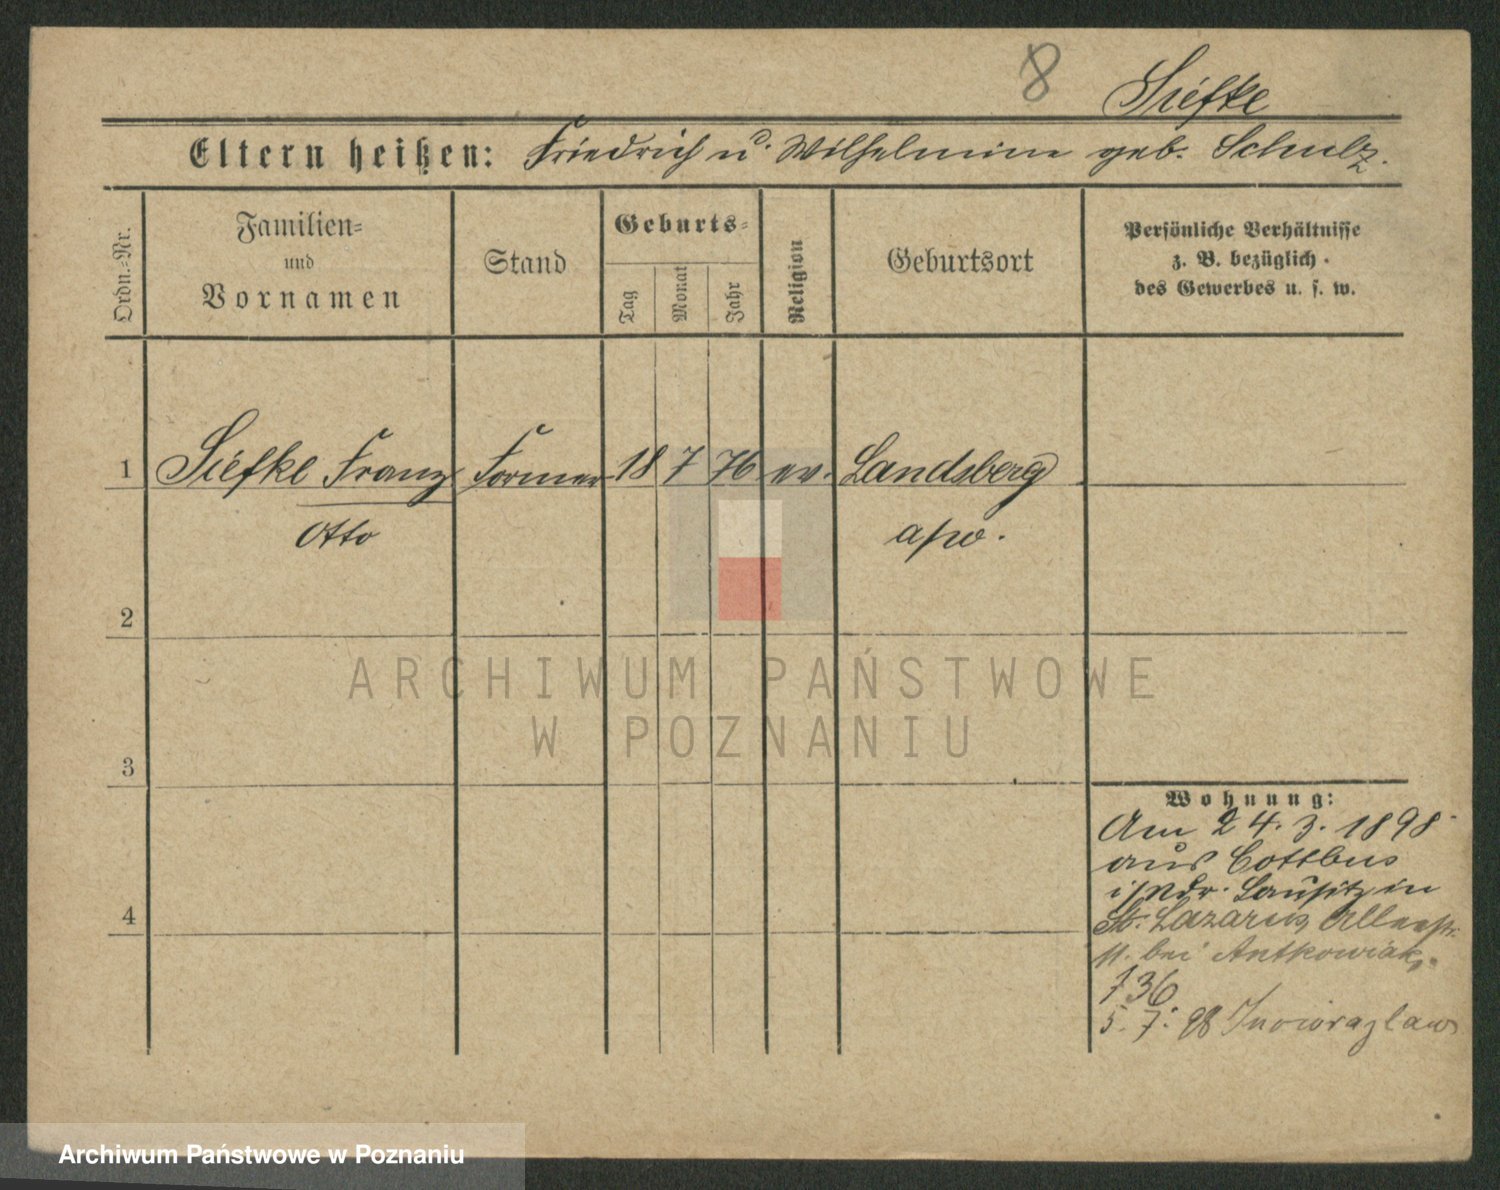 8 Siefke
Eltern heißen: Friedrich u. Wilhelmine geb. Schulz.
Ordn.-Nr.
Familien- und Vornamen
Stand
Geburts-
Tag
Monat
Jahr
Religion
Geburtsort
Persönliche Verhältnisse
z. B. bezüglich
des Gewerbes u. s. w.
1 Siefke Franz Former 18 7 76 ev. Landsberg
Otto a/w.
2
3
4
Wohnung:
Am 24. 3. 1898
aus Cottbus
i/Ndr. Lausitz in
St. Lazarus, Alleestr.
11. bei Antkowiak,
736
5. 7. 98 Inowrazlaw
ARCHIWUM PAŃSTWOWE
W POZNANIU
Archiwum Państwowe w Poznaniu